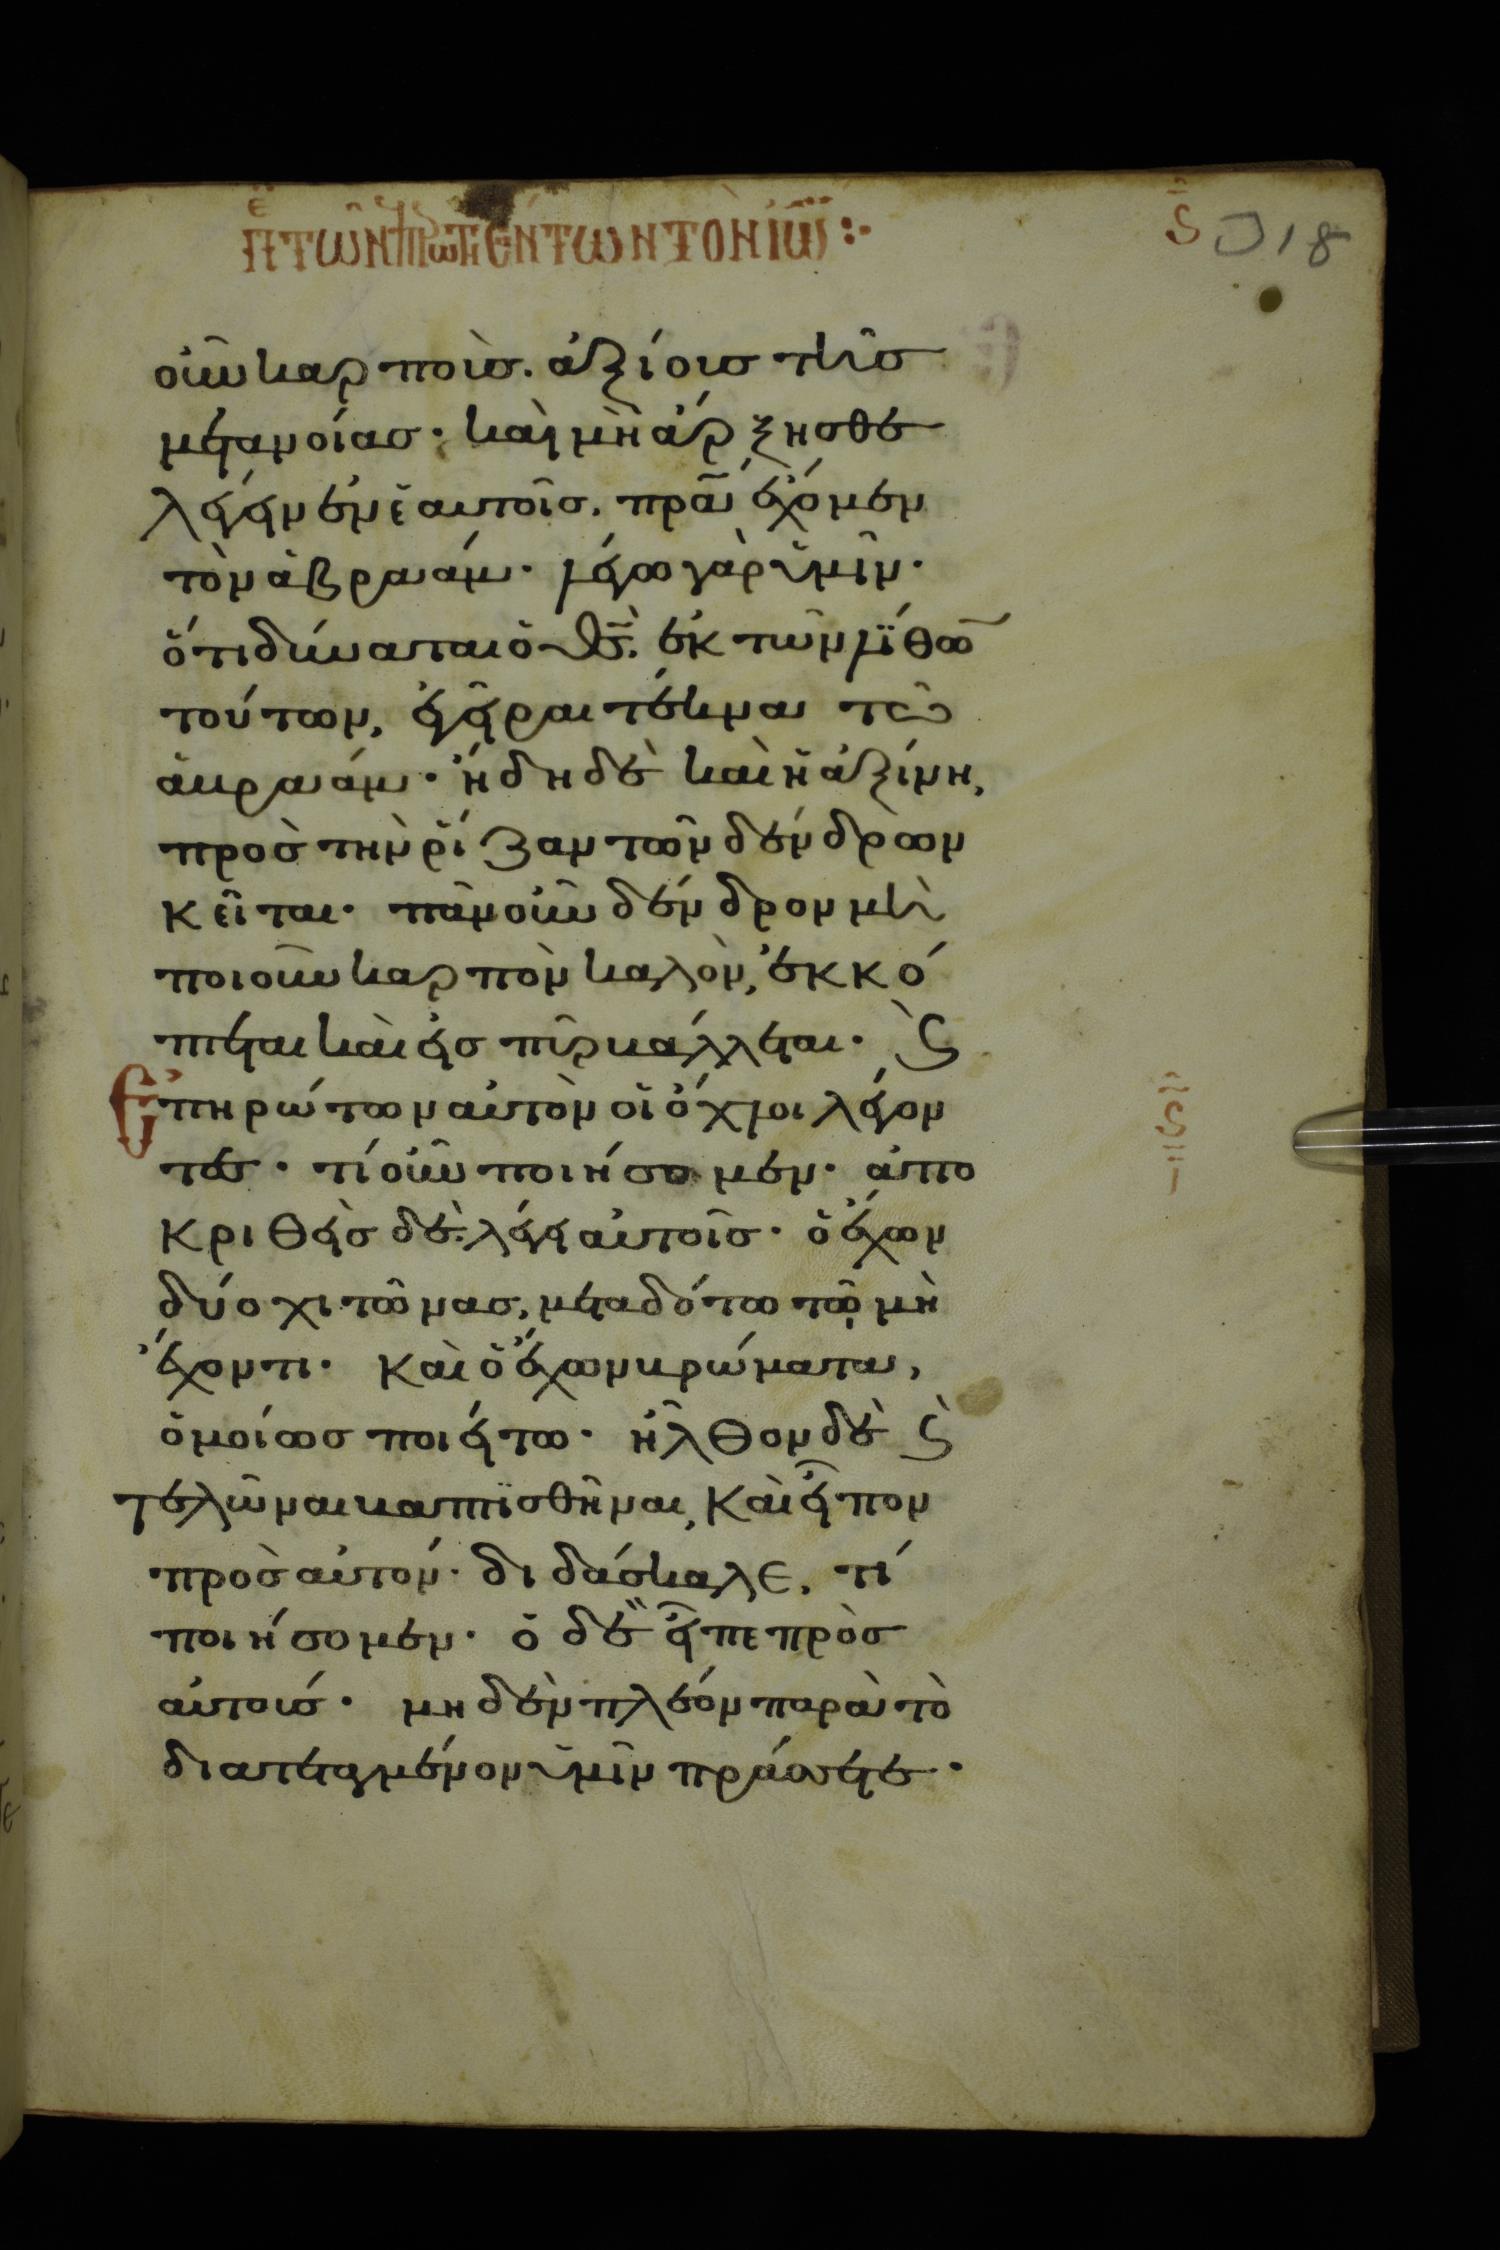 περὶ τῶν ἐπερωτησάντων τὸν ἰω :·
οὖν καρποὺσ. ἀξίουσ τῆσ
μετανοίασ· καὶ μὴ ἄρξησθε
λέγειν ἐν ἑαυτοῖσ. πρᾱ ἔχομεν
τὸν ἁβραάμ· λέγω γὰρ ὑμῖν·
ὅτι δύναται ὁ θσ̄. ἐκ τῶν λίθω̄
τούτων, ἐγεῖραι τέκνα τῶ
ἁβραάμ· ἤδη δὲ καὶ ἡ ἀξίνη,
πρὸσ τὴν ῥίζαν τῶν δένδρων
κεῖται· πᾶν οὖν δένδρον μὴ
ποιοῦν καρπὸν καλὸν, ἐκκό
πτεται καὶ εἰσ πῦρ βάλλεται· Ϛ
Ἐπηρώτων αὐτὸν οἱ ὄχλοι λέγον
τεσ· τί οὖν ποιήσομεν· ἀπο
κριθεὶσ δὲ. λέγει αὐτοῖσ· ὁ ἔχων
δύο χιτῶνασ, μεταδότω τῶ μὴ
ἔχοντι· καὶ ὁ ἔχων βρώματα,
ὁμοίωσ ποιείτω· ἦλθον δὲ Ϛ
τελῶναι βαπτϊσθῆναι, καὶ εἶπον
πρὸσ αὐτόν· διδάσκαλε, τί
ποιήσομεν· ὁ δὲ εἶπε πρὸσ
αὐτούσ· μηδὲν πλέον παρὰ τὸ
διατεταγμένον ὑμῖν πράσσετε·
Ϛ
18